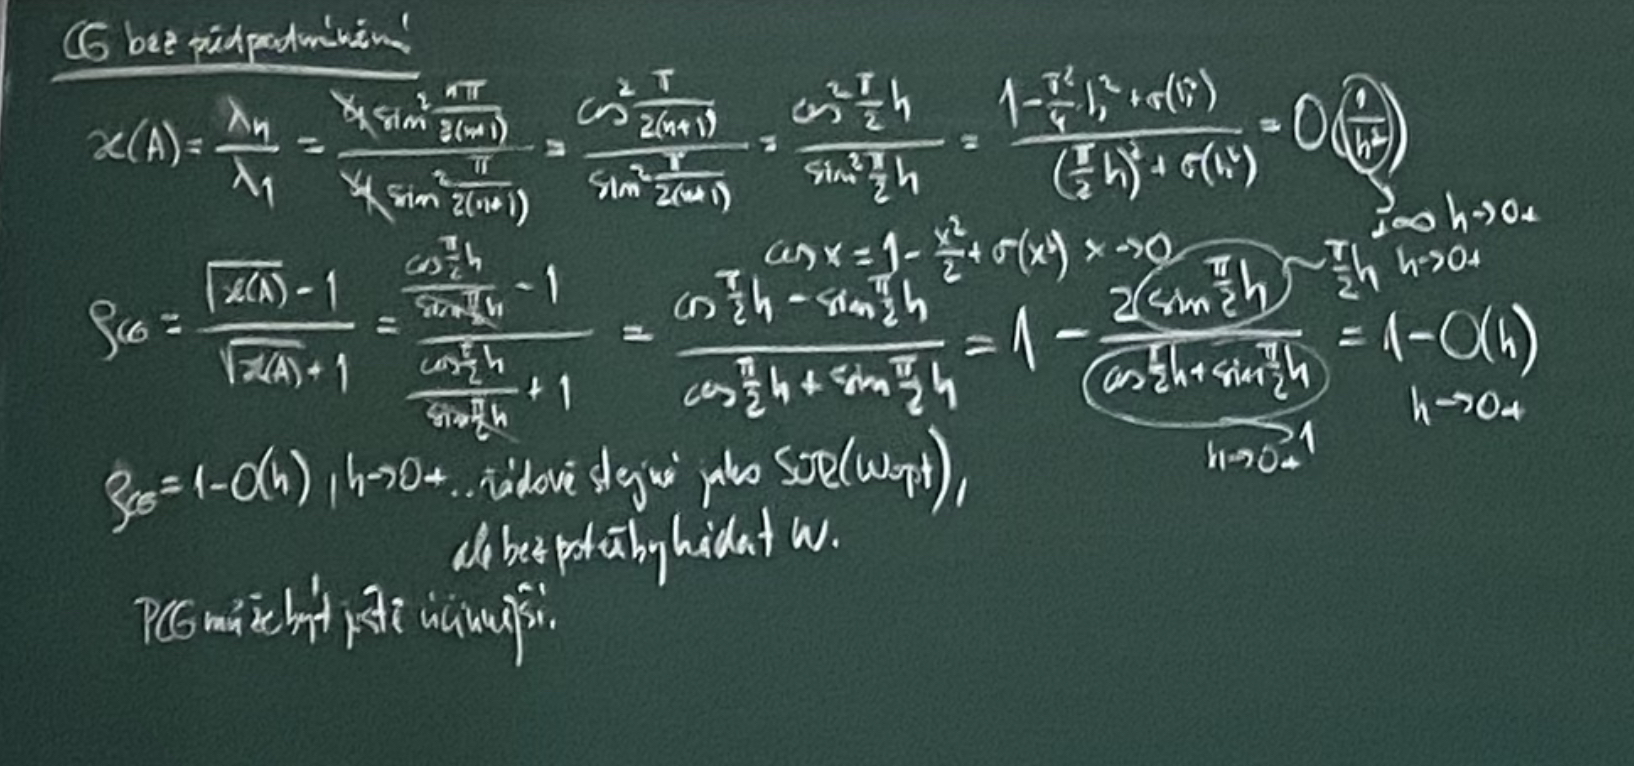 CG bez předpodmínění
ϰ(A) = λn/λ1 = (4 sin² nπ/2(n+1))/(4 sin² π/2(n+1)) = (cos² π/2(n+1))/(sin² π/2(n+1)) = (cos² π/2 h)/(sin² π/2 h) = (1 - π²/4 · h² + σ(h²))/((π/2 h)² + σ(h²)) = O(1/h²)
+∞ h→0+
cos x = 1 - x²/2 + σ(x²) x→0
ρCG = (√ϰ(A) - 1)/(√ϰ(A) + 1) = ((cos π/2 h)/(sin π/2 h) - 1)/((cos π/2 h)/(sin π/2 h) + 1) = (cos π/2 h - sin π/2 h)/(cos π/2 h + sin π/2 h) = 1 - (2 sin π/2 h)/(cos π/2 h + sin π/2 h) = 1 - O(h)
~ π/2 h h→0+
h→0+
1
h→0+
ρCG = 1-O(h), h→0+ .. řádově stejné jako SOR(ωopt),
ale bez potřeby hádat ω.
PCG může být ještě účinnější.